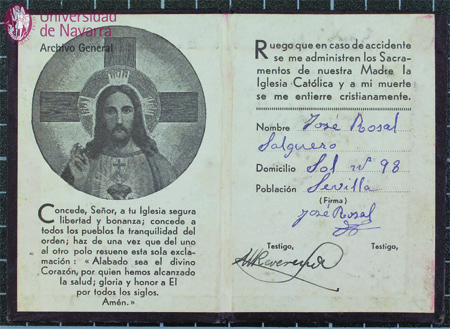 Universidad
de Navarra
Archivo General
Concede, Señor, a tu Iglesia segura
libertad y bonanza; concede a
todos los pueblos la tranquilidad del
orden; haz de una vez que del uno
al otro polo resuene esta sola excla-
mación: « Alabado sea el divino
Corazón, por quien hemos alcanzado
la salud; gloria y honor a El
por todos los siglos.
Amén. »
Ruego que en caso de accidente
se me administren los Sacra-
mentos de nuestra Madre la
Iglesia Católica y a mi muerte
se me entierre cristianamente.
Nombre José Rosal
Salguero
Domicilio Sol nº 98
Población Sevilla
(Firma)
José Rosal
Testigo, Testigo,